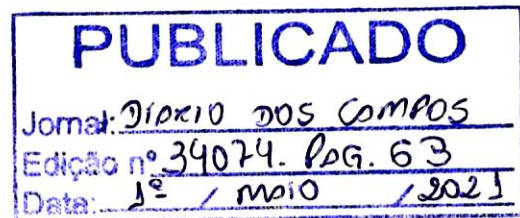 PUBLICADO
Jornal: DIÁRIO DOS CAMPOS
Edição nº 34074. PAG. 63
Data: 1º / MAIO / 2021